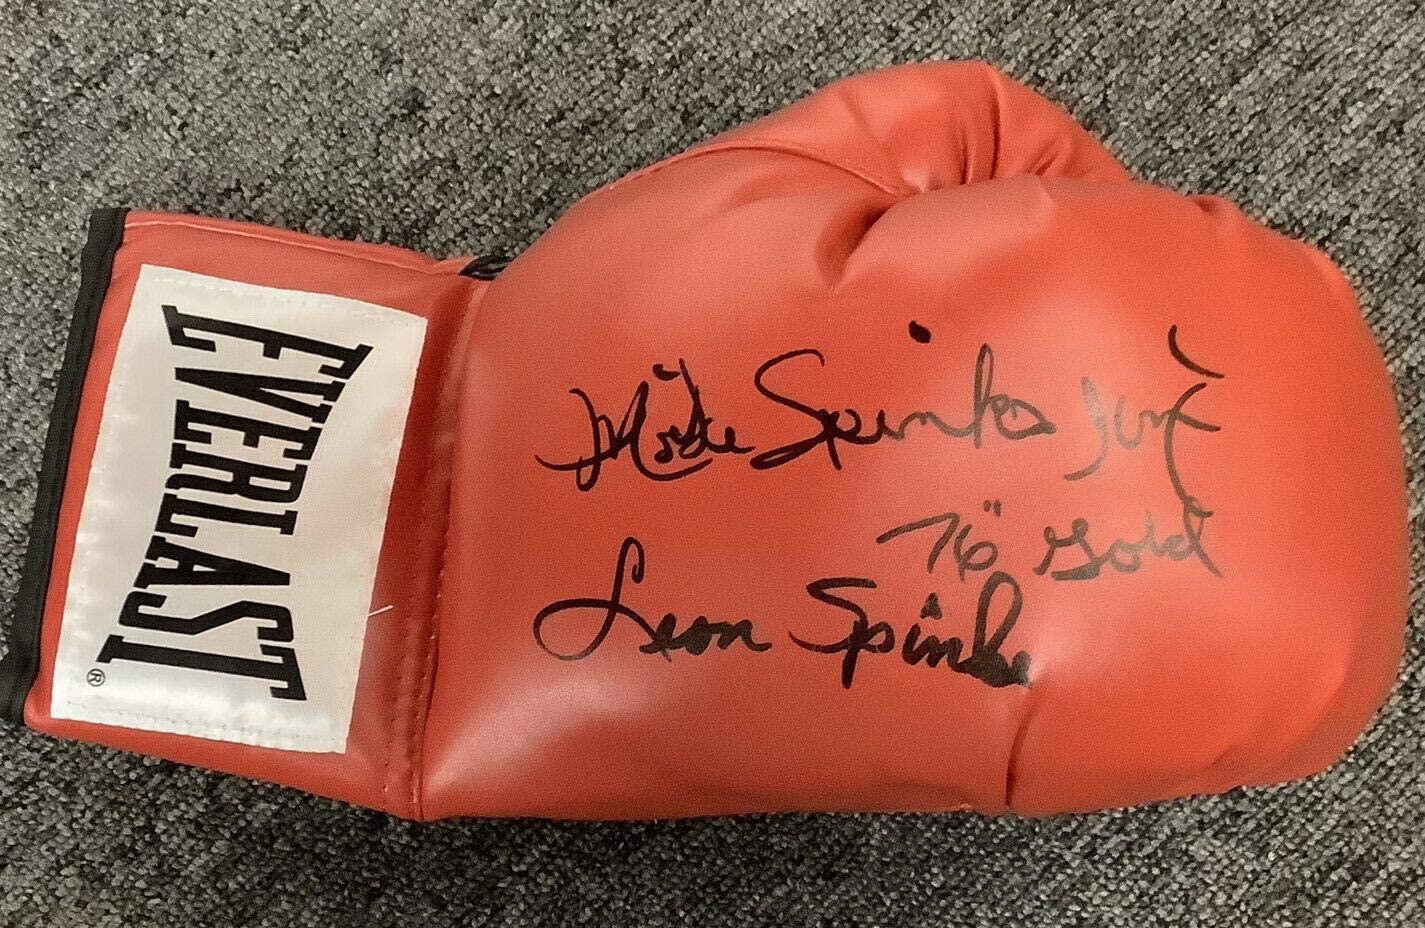 EVERLAST
®
Mike Spinks Jinx
76" Gold
Leon Spinks